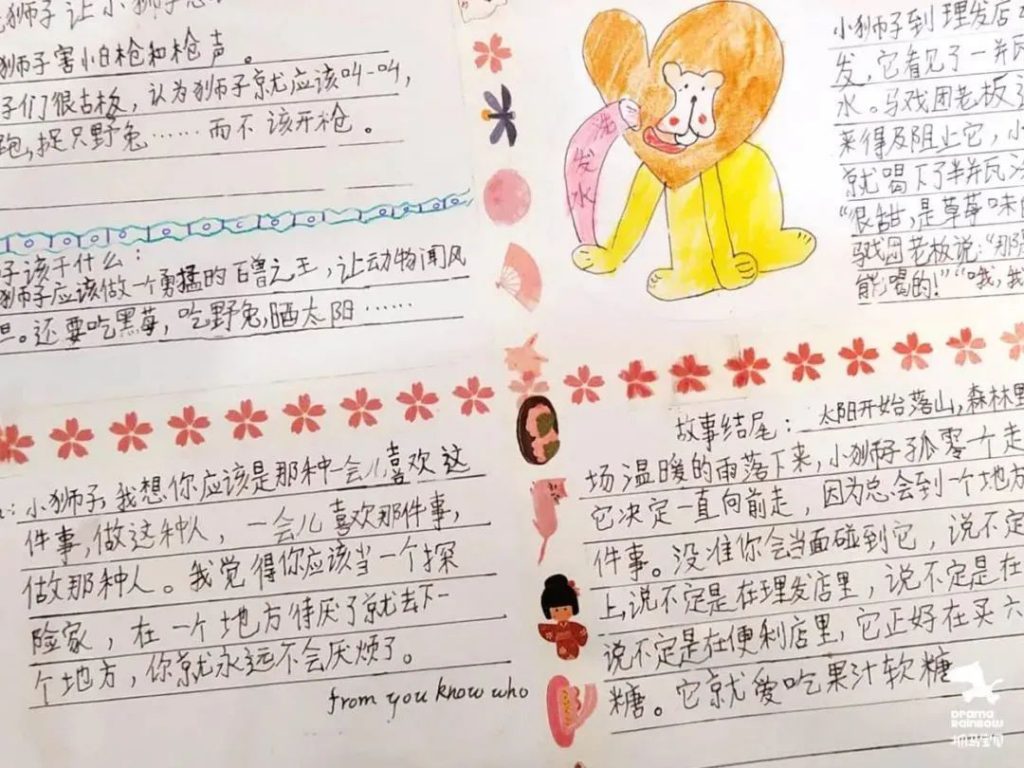 狮子让小狮子
狮子害怕枪和枪声。
子们很古板，认为狮子就应该叫一叫，
跑，捉只野兔……而不该开枪。
子该干什么：
狮子应该做一个勇猛的百兽之王，让动物闻风
旦。还要吃黑莓，吃野兔，晒太阳……
小狮子，我想你应该是那种一会儿喜欢这
件事，做这种人，一会儿喜欢那件事，
做那种人。我觉得你应该当一个探
险家，在一个地方待厌了就去下一
个地方，你就永远不会厌烦了。
from you know who
洗发水
小狮子到理发店
发，它看见了一瓶
水。马戏团老板
来得及阻止它，小
就喝下了半瓶洗
“很甜，是草莓味
马戏团老板说：“那
能喝的！”“哦，我
故事结尾：太阳开始落山，森林里
场温暖的雨落下来，小狮子孤零个走
它决定一直向前走，因为总会到一个地方
件事。没准你会当面碰到它，说不定
上，说不定是在理发店里，说不定是在
说不定是在便利店里，它正好在买六
糖。它就爱吃果汁软糖
Drama
Rainbow
抓马宝贝